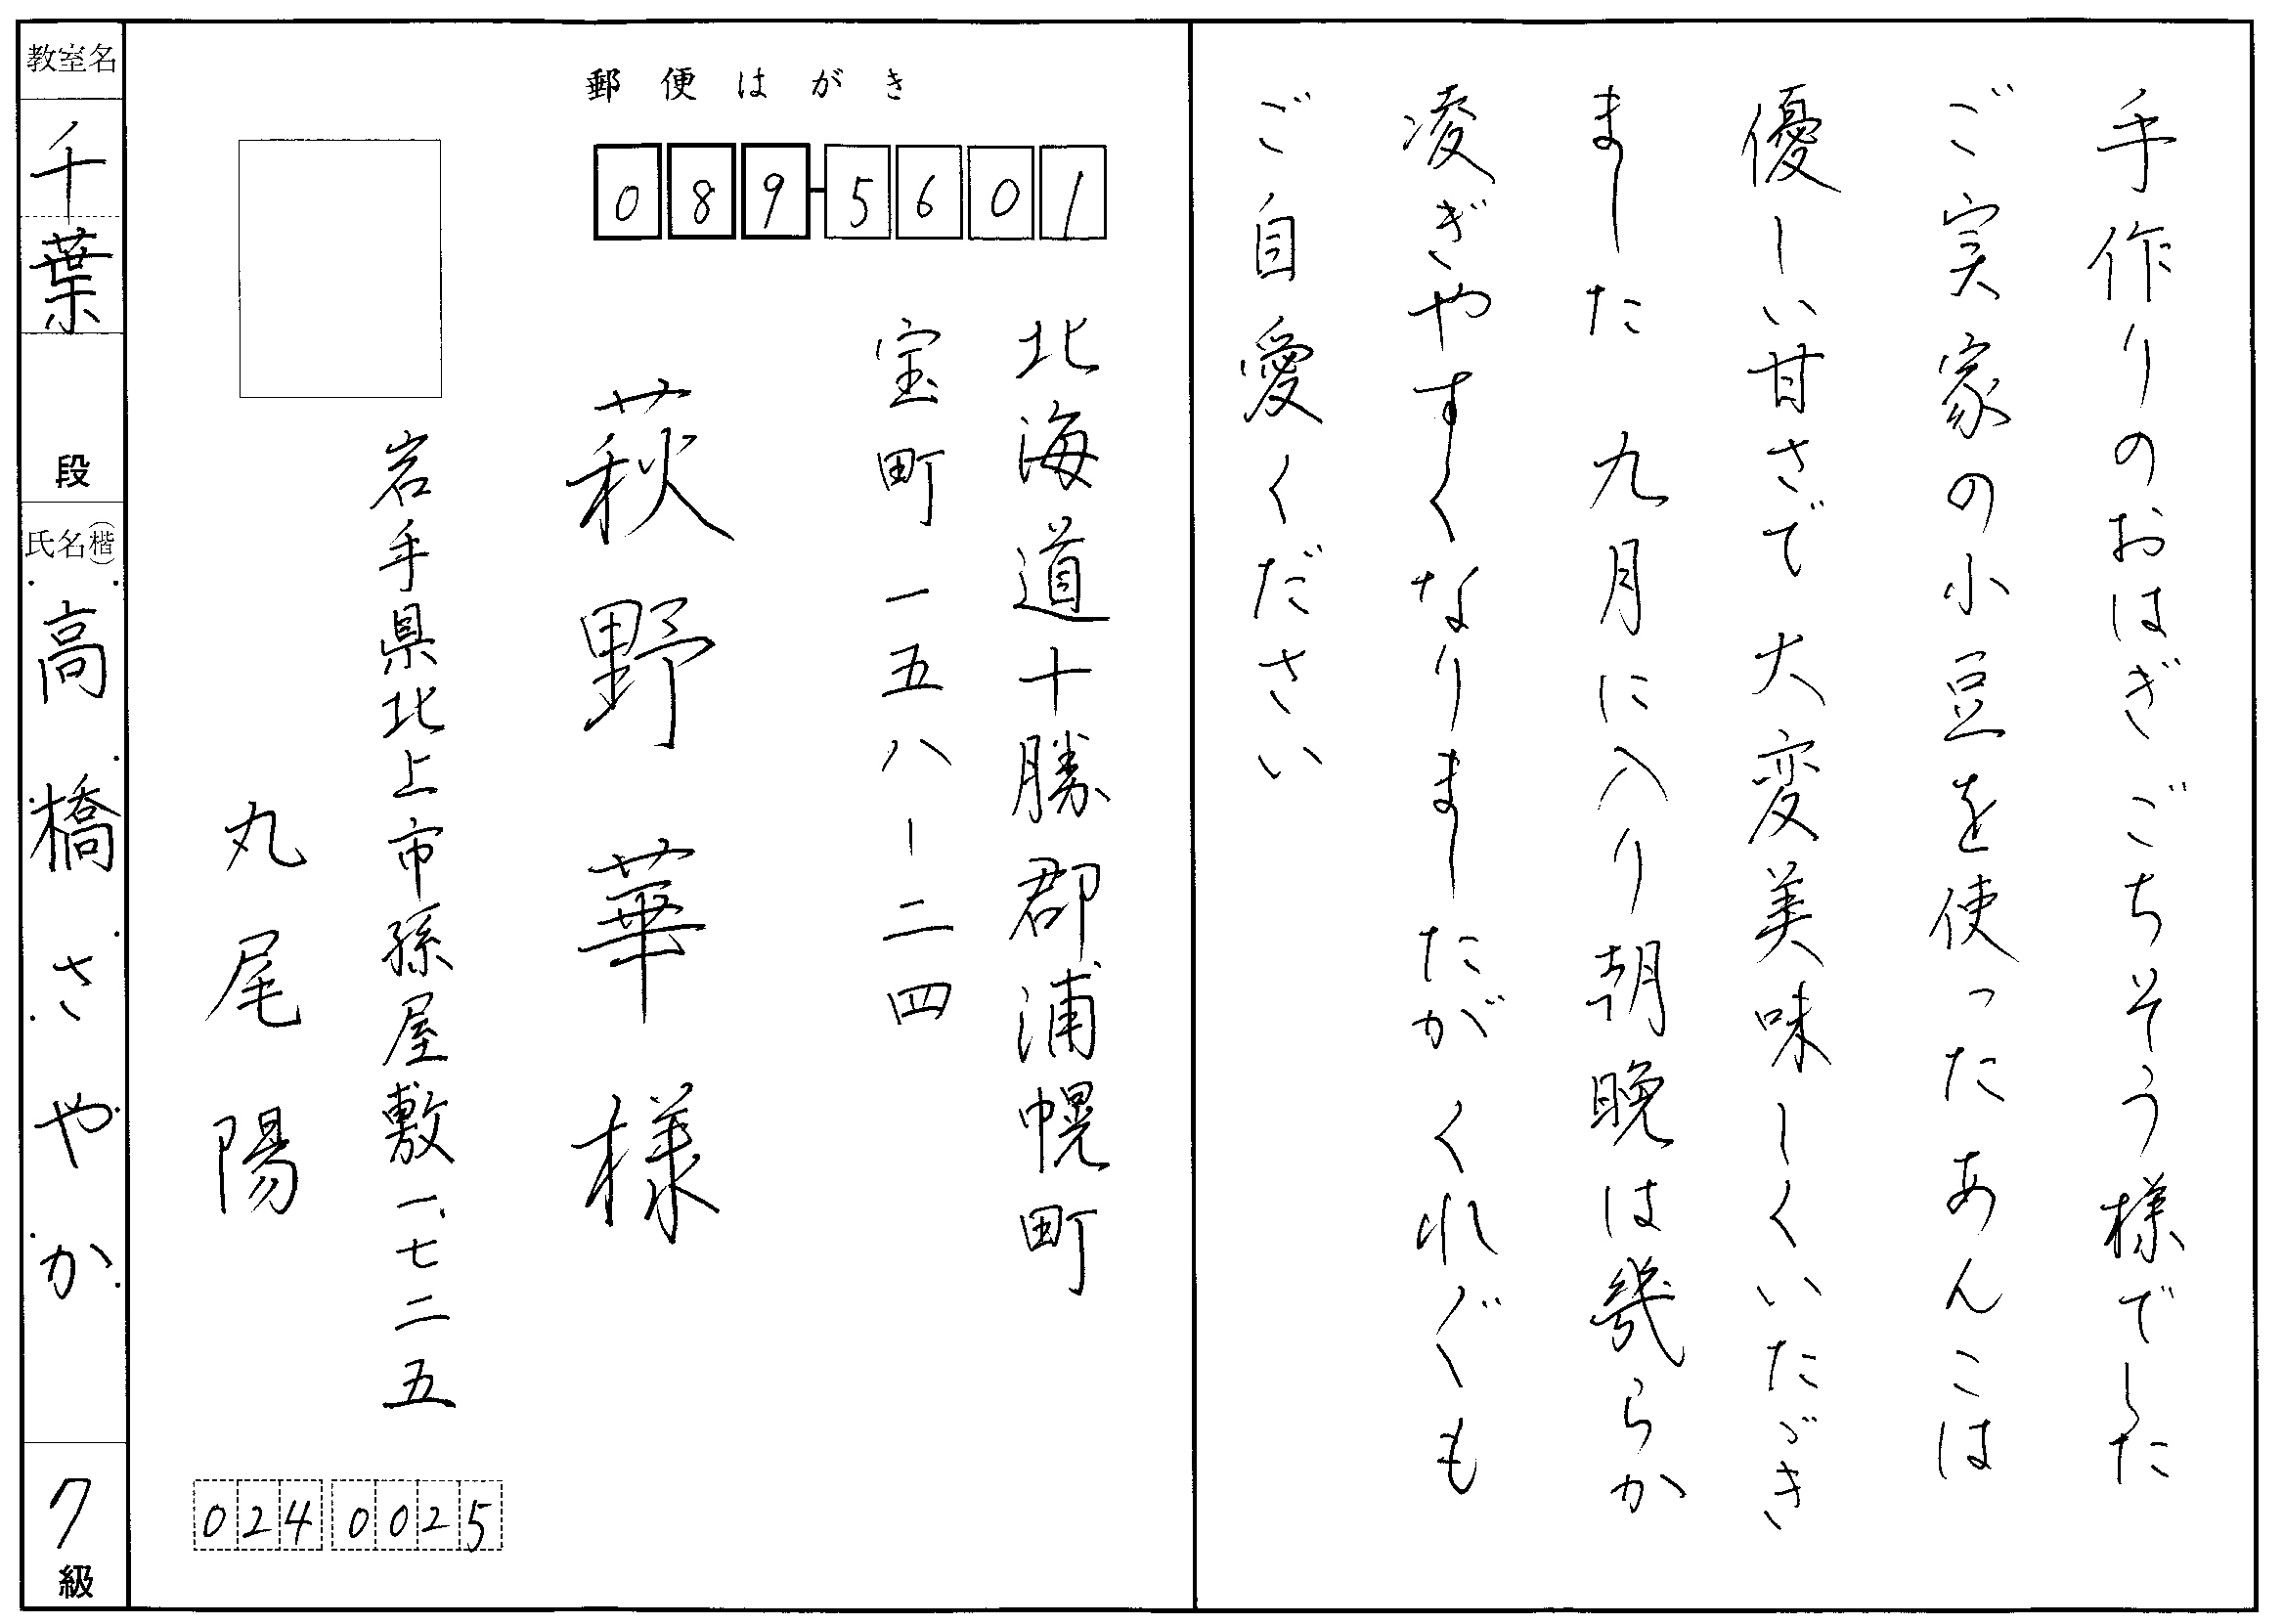 手作りのおはぎごちそう様でした
ご実家の小豆を使ったあんこは
優しい甘さで大変美味しくいただき
ました 九月に入り朝晩は幾らか
凌ぎやすくなりましたがくれ〲も
ご自愛ください
郵便はがき
089-5601
北海道十勝郡浦幌町
宝町一五八-二四
萩野華様
岩手県北上市孫屋敷一七二五
丸尾陽
024 0025
教室名
千葉
段
氏名(楷)
高橋さやか
7級